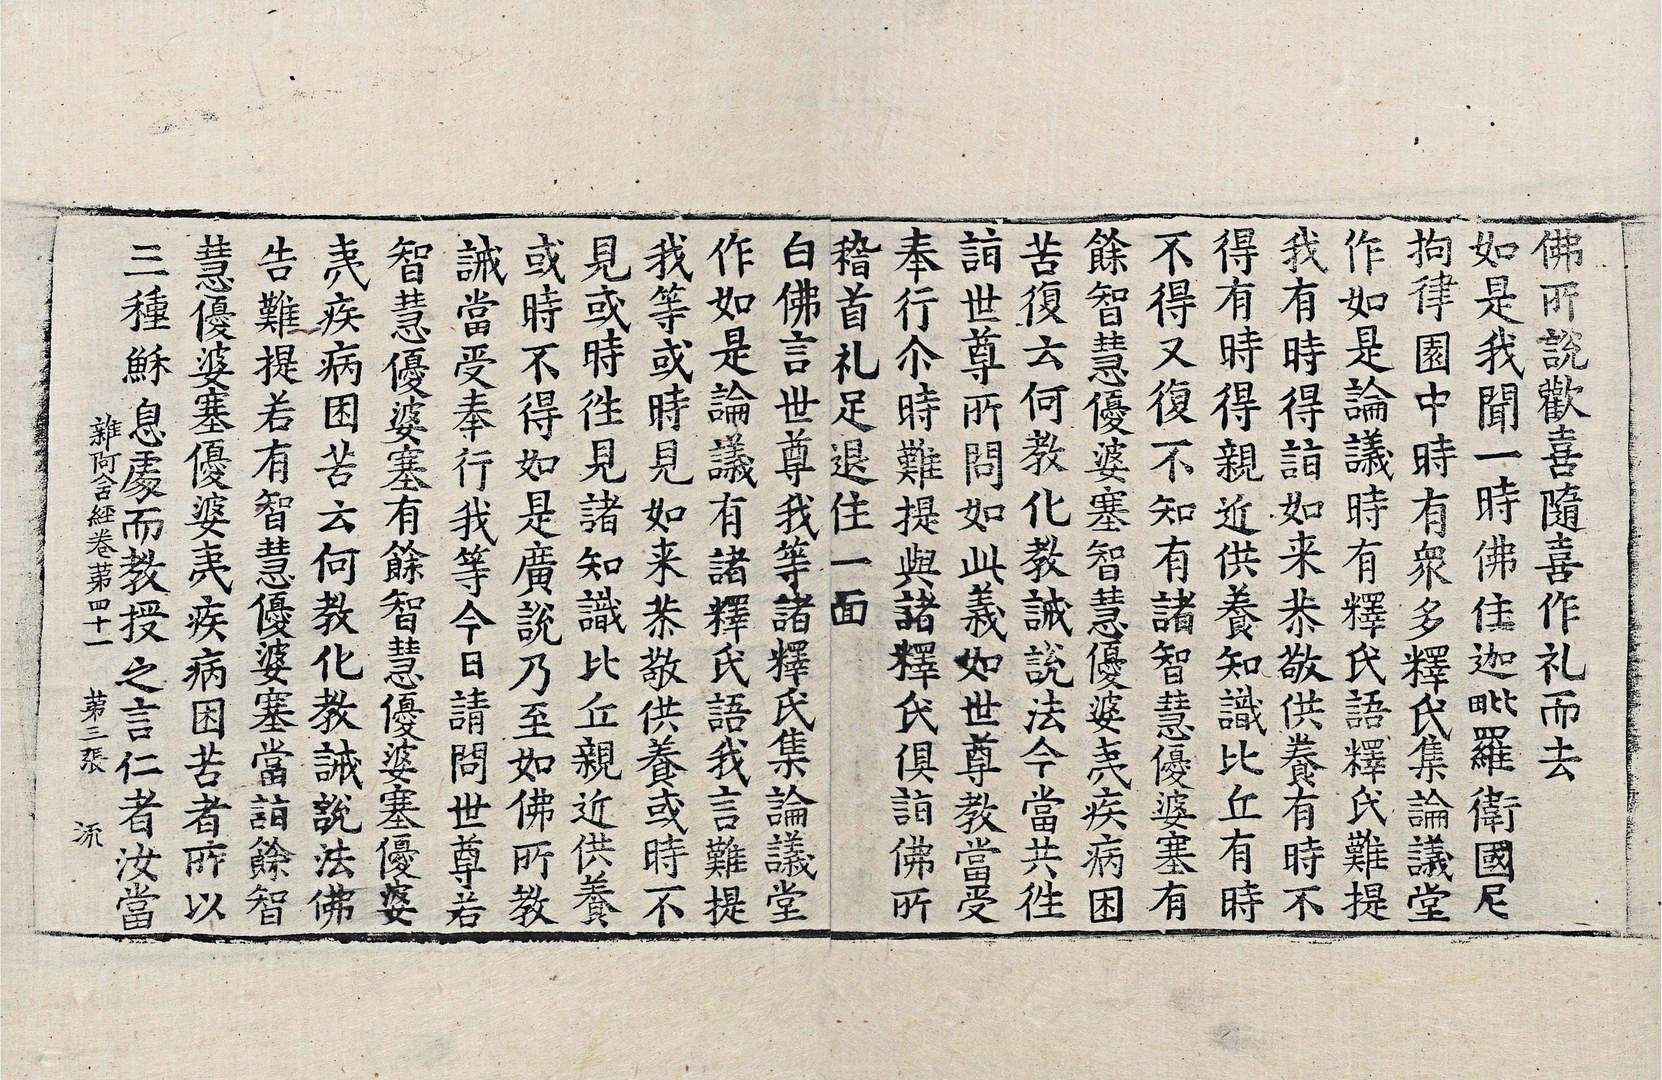 佛所說歡喜隨喜作礼而去
如是我聞一時佛住迦毗羅衛國尼
拘律園中時有衆多釋氏集論議堂
作如是論議時有釋氏語釋氏難提
我有時得詣如来恭敬供養有時不
得有時得親近供養知識比丘有時
不得又復不知有諸智慧優婆塞有
餘智慧優婆塞智慧優婆夷疾病困
苦復云何教化教誡說法今當共往
詣世尊所問如此義如世尊教當受
奉行尒時難提與諸釋氏俱詣佛所
稽首礼足退住一面
白佛言世尊我等諸釋氏集論議堂
作如是論議有諸釋氏語我言難提
我等或時見如来恭敬供養或時不
見或時往見諸知識比丘親近供養
或時不得如是廣說乃至如佛所教
誡當受奉行我等今日請問世尊若
智慧優婆塞有餘智慧優婆塞優婆
夷疾病困苦云何教化教誡說法佛
告難提若有智慧優婆塞當詣餘智
慧優婆塞優婆夷疾病困苦者所以
三種穌息處而教授之言仁者汝當
雜阿含經卷苐四十一 苐三張 流